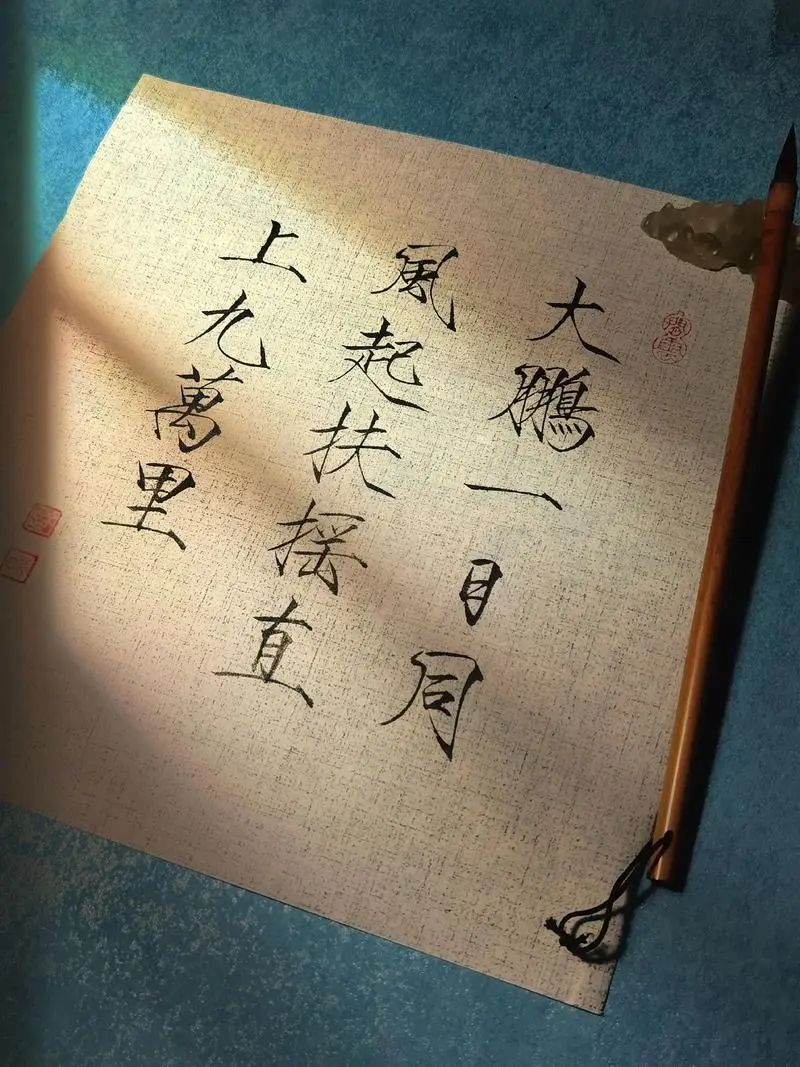 大鵬一日同
風起扶摇直
上九萬里